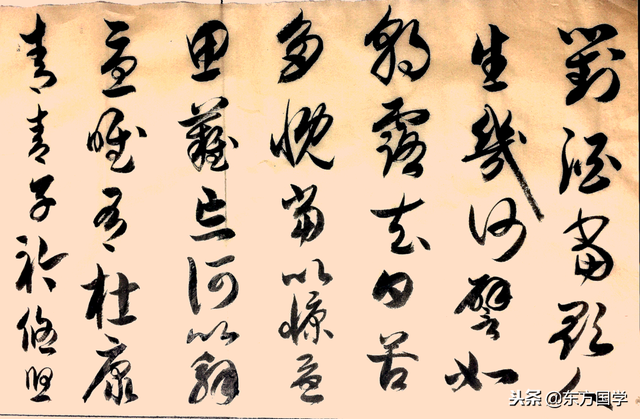 對酒當歌人
生幾何譬如
朝露去日苦
多慨當以慷憂
思難忘何以解
憂唯有杜康
青青子衿悠悠
头条 @东方国学